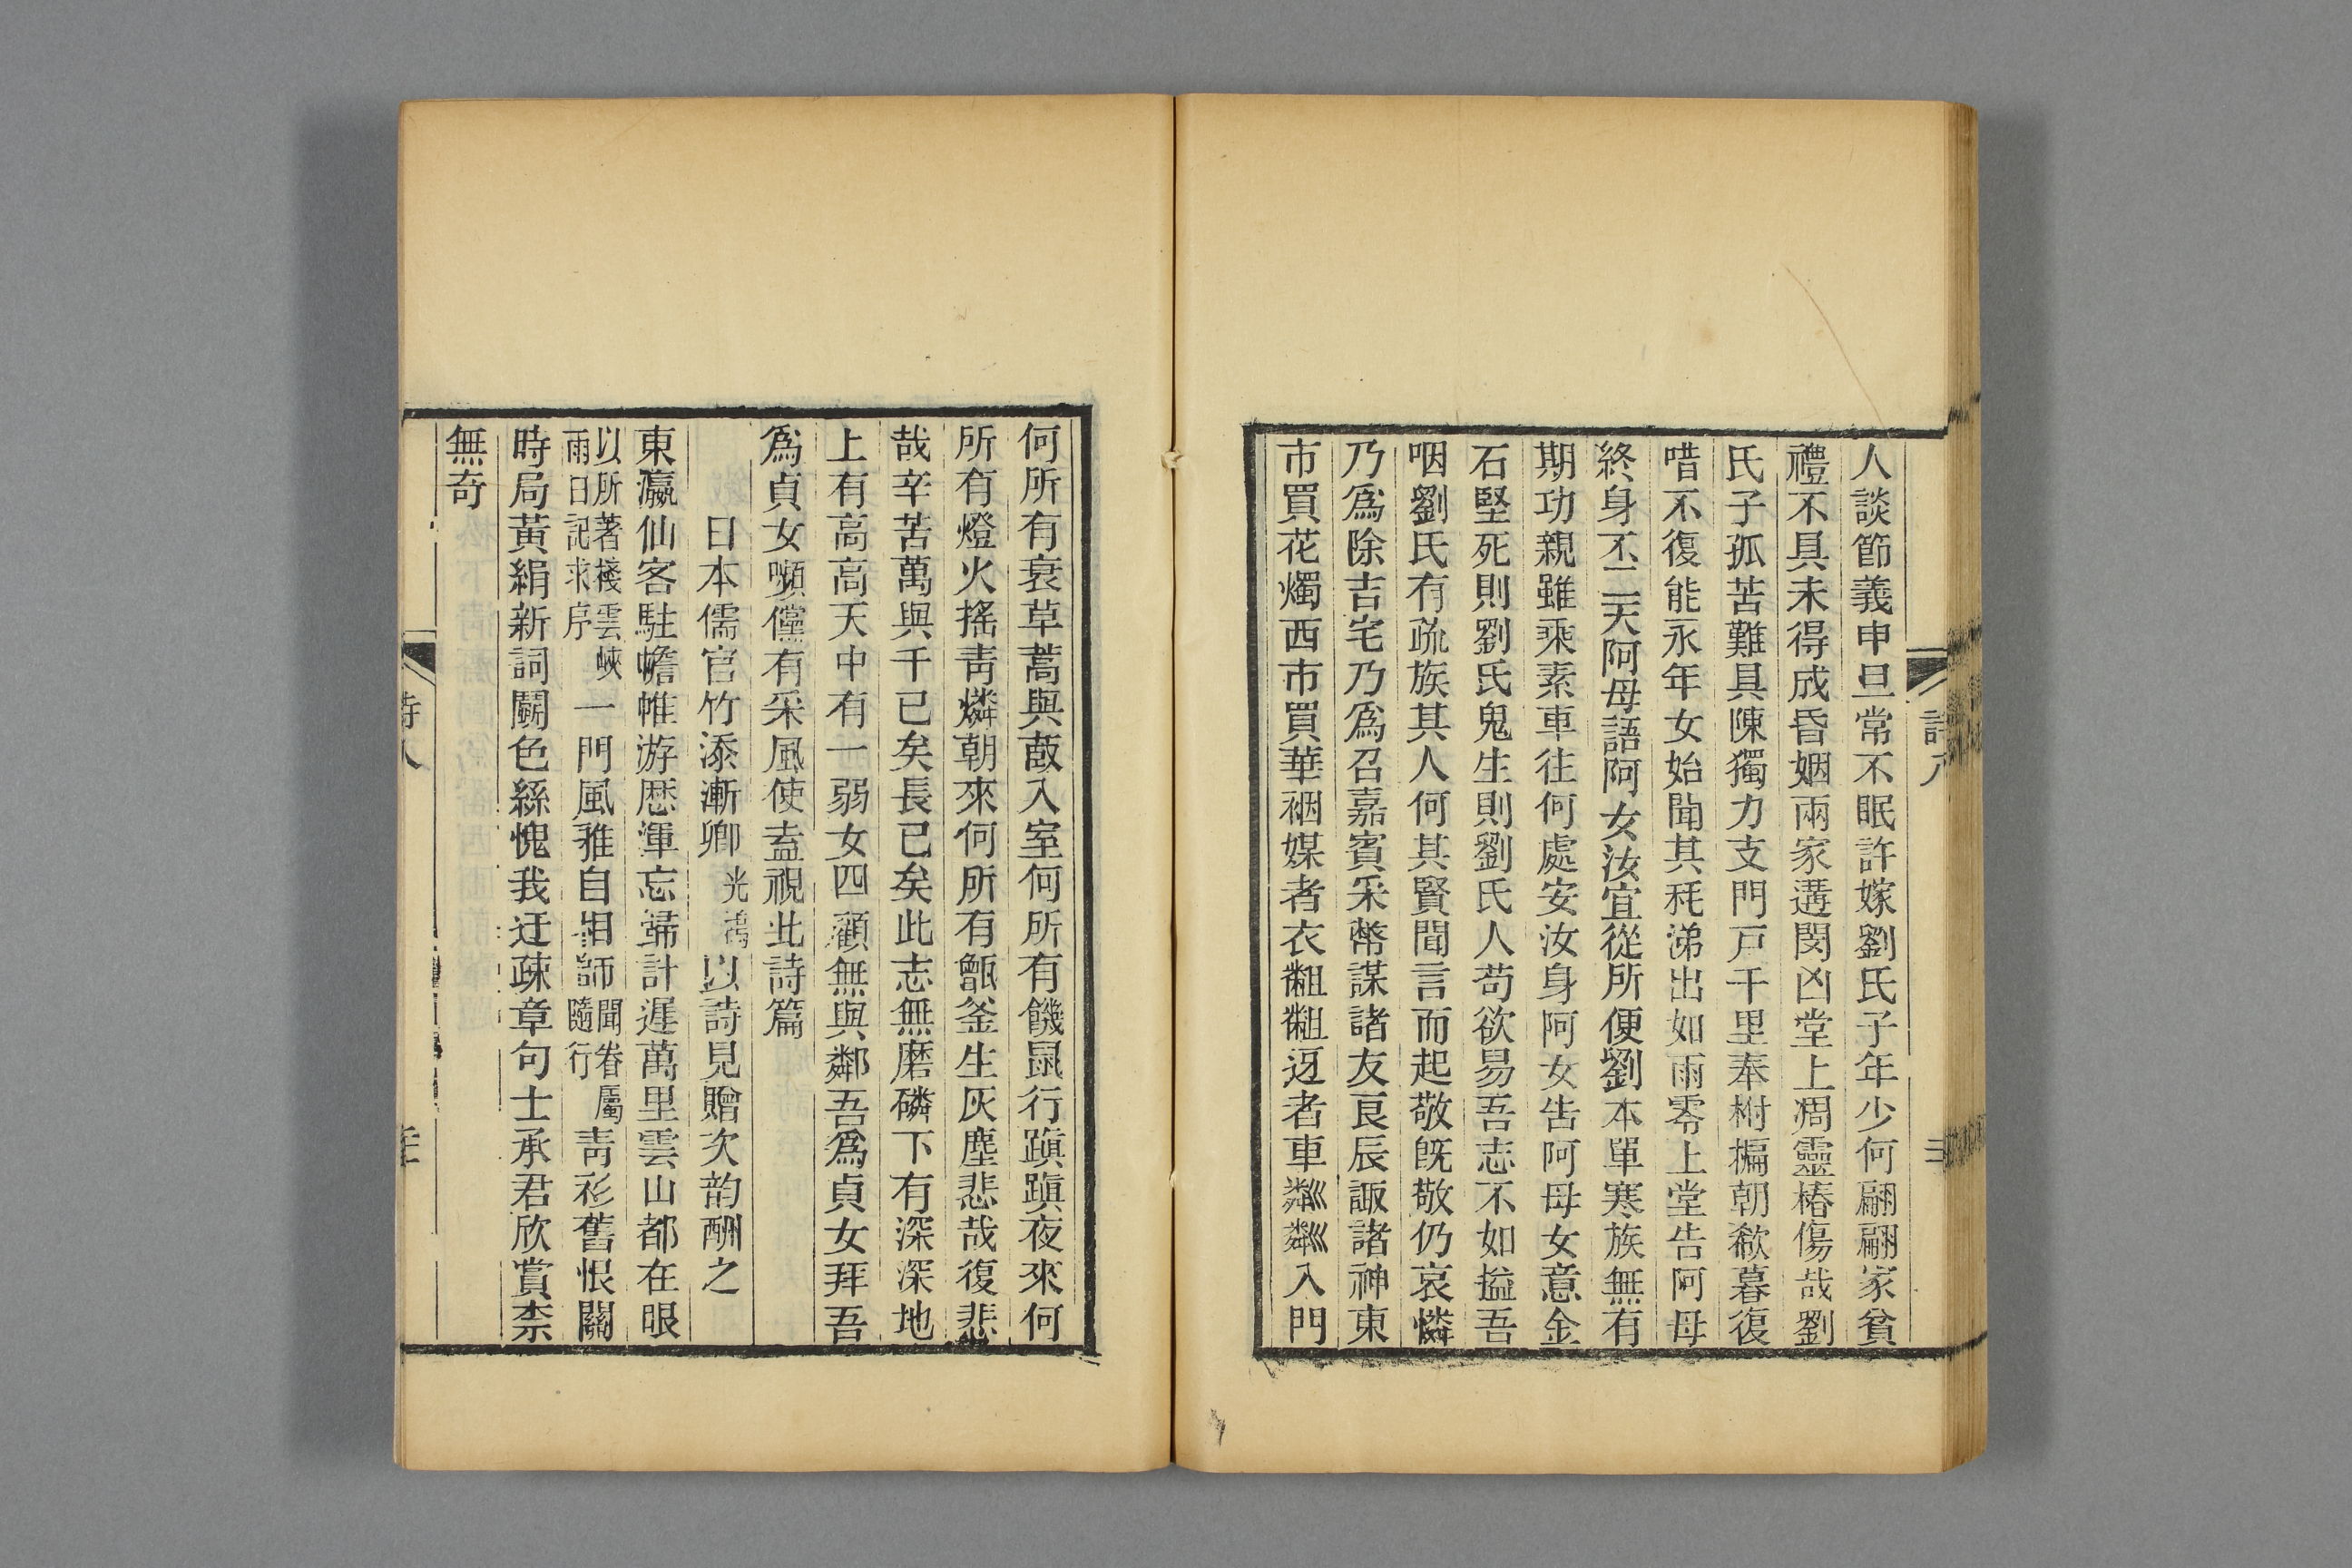 人談節義申旦常不眠許嫁劉氏子年少何翩翩家貧
禮不具未得成昏姻兩家遘閔凶堂上凋靈椿傷哉劉
氏子孤苦難具陳獨力支門戸千里奉柎揙朝欷暮復
唶不復能永年女始聞其秏涕出如雨零上堂告阿母
終身不二天阿母語阿女汝宜從所便劉本單寒族無有
期功親雖乘素車往何處安汝身阿女告阿母女意金
石堅死則劉氏鬼生則劉氏人苟欲易吾志不如搤吾
咽劉氏有疏族其人何其賢聞言而起敬旣敬仍哀憐
乃爲除吉宅乃爲召嘉賓采幣謀諸友良辰諏諸神東
市買花燭西市買華裀媒者衣䊵䊵迓者車粼粼入門
詩八
何所有衰草蒿與菣入室何所有饑鼠行蹎蹎夜來何
所有燈火搖靑燐朝來何所有甑釜生灰塵悲哉復悲
哉辛苦萬與千已矣長已矣此志無磨磷下有深深地
上有高高天中有一弱女四顧無與鄰吾爲貞女拜吾
爲貞女嚬儻有采風使盍視此詩篇
日本儒官竹添漸卿光鴻以詩見贈次韵酬之
東瀛仙客駐幨帷游歴渾忘歸計遲萬里雲山都在眼
以所著棧雲峽雨日記求序一門風雅自相師聞眷屬隨行靑衫舊恨關
時局黃絹新詞鬭色絲愧我迂疎章句士承君欣賞柰
無奇
詩八